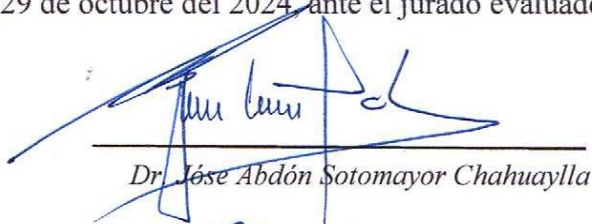 29 de octubre del 2024, ante el jurado evaluado
Dr. Jóse Abdón Sotomayor Chahuaylla